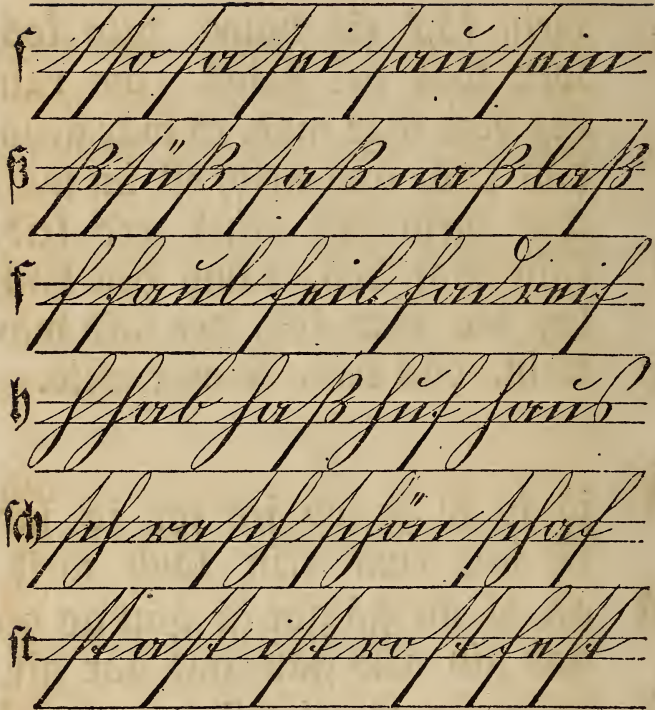 ſ ſ ſo ſa ſei ſau ſein
ß ß ſüß ſaß naß laß
f f faul feil fad reif
h h hab haß huf haus
ſch ſch raſch ſchön ſchaf
ſt ſt aſt iſt roſt feſt